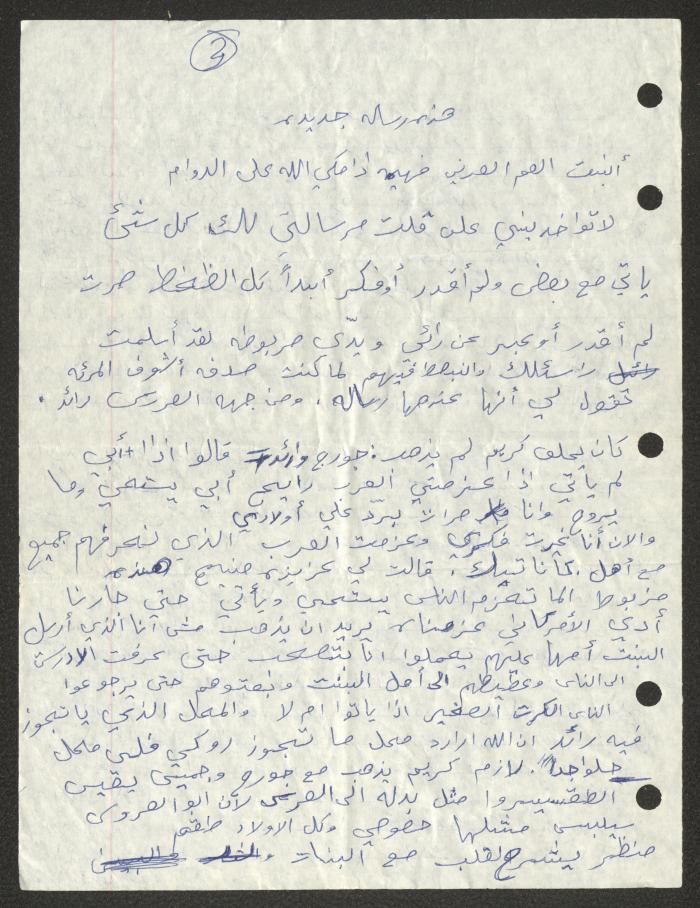 2
هذه رساله جديده
أبنت العم العزيزه فهيمه ادامكي الله على الدوام
لا تواخديني على قلت مرسالتي للك كل شئ
ياتي مع بعض ولم أقدر أوفكر أبداً كل الظغط صرت
لم أقدر أوعبر عن رائي ويدّى مربوطه لقد أسلمت
راسئلك والنبصط فيهم لما كنت صلافه أشوف المرئه
تقول لي أنها عندها رساله، ومن جهه العروس رائد.
كان يحلق كريم لم يذهب جورج قالوا اذا أبي
لم يأتي اذا عزمتي العرب رايح أبي يستحي وما
يروح وانا صرات يردّ علي أولادي
والان أنا غيرت فكري وعزمت العرب الذي نعرفهم جميع
مع أهل. قالت لي عزيزه منيح هنده
مزبوط الما تعزم الناس يستحي ويأتي حتى جارنا
أدي الأمركاني عزمناه يريد ان يذهب مش أنا الذي أرسل
البنت أمها عليهم يعملوا انا نتصلت حتى عرفت الادرس
الى الناس وعطيهم الى أهل البنت وبعتوهم حتى يرجوعوا
الناس الكرت الصغير اذا ياتوا ام لا والمحل الذي ياتجوز
فيه رائد ان الله اراد محل ما تجوز روكي فلس محل
حلو اجداً. لازم كريم يذهب مع جورج وجميتى يقيس
الطقسيسروا مثل بدله الى العرس لأن ابو العروس
سيلبس مثلها خصوصي وكل الاولاد طقم
منظر يشرح لقلب مع البنات